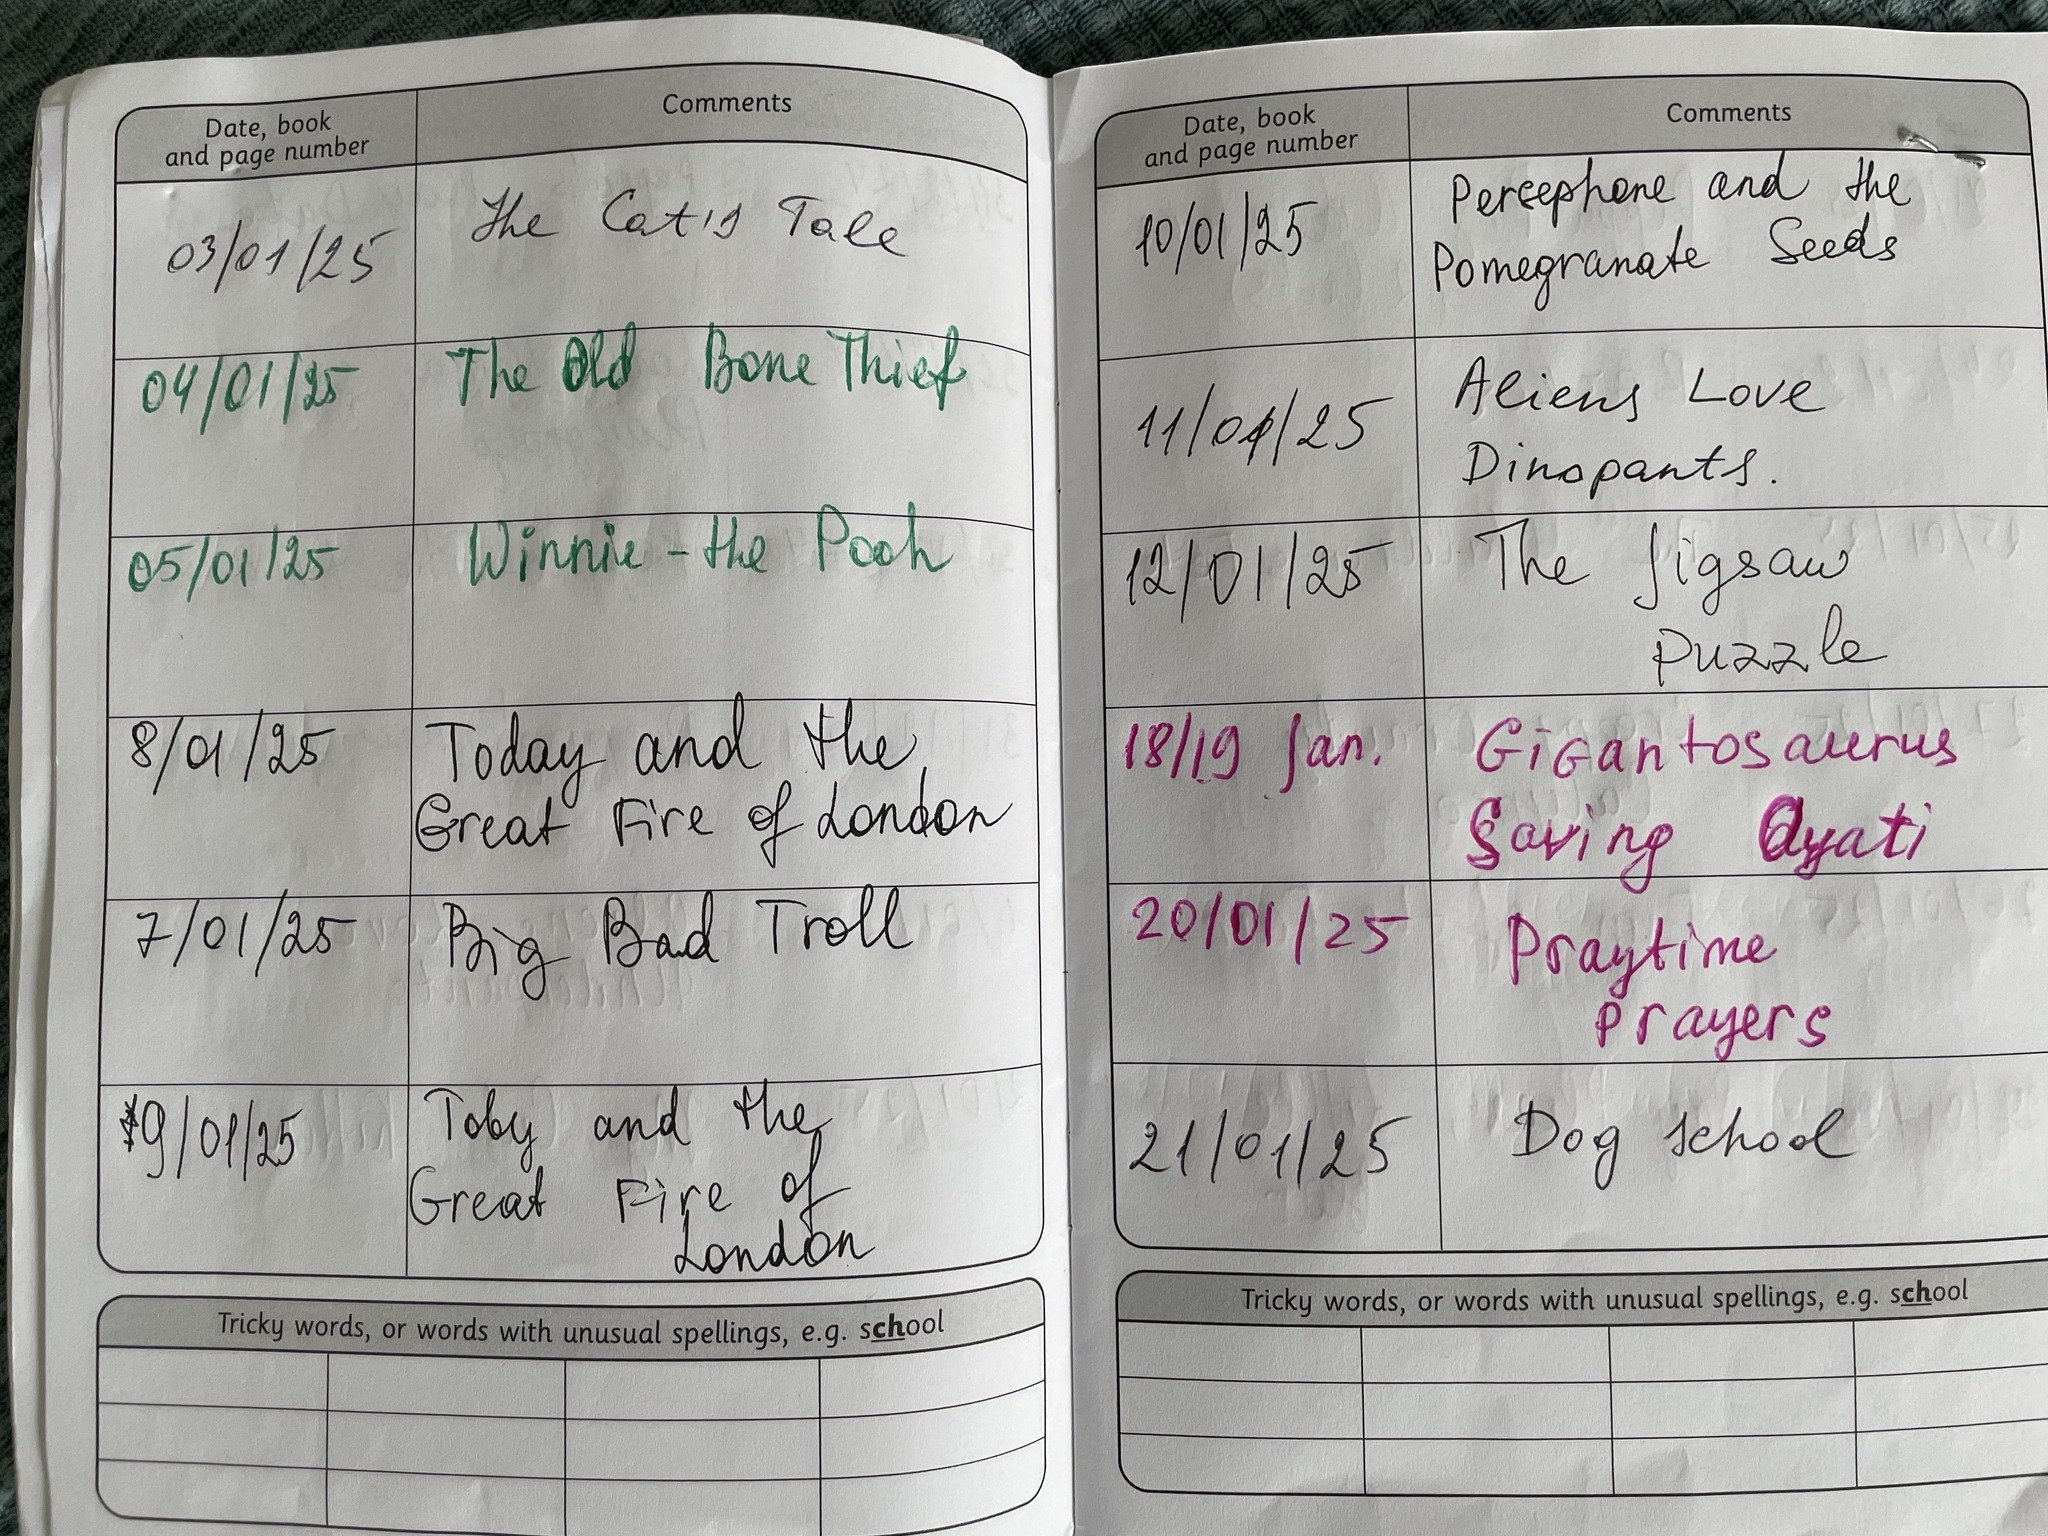 Date, book
and page number
Comments
03/01/25
The Cat's Tale
04/01/25
The Old Bone Thief
05/01/25
Winnie-the Pooh
8/01/25
Today and the
Great Fire of London
7/01/25
Big Bad Troll
9/01/25
Toby and the
Great Fire of
London
Tricky words, or words with unusual spellings, e.g. school
Date, book
and page number
Comments
10/01/25
Persephone and the
Pomegranate Seeds
11/01/25
Aliens Love
Dinopants.
12/01/25
The Jigsaw
Puzzle
18/19 Jan.
Gigantosaurus
Saving
20/01/25
Praytime
Prayers
21/01/25
Dog school
Tricky words, or words with unusual spellings, e.g. school